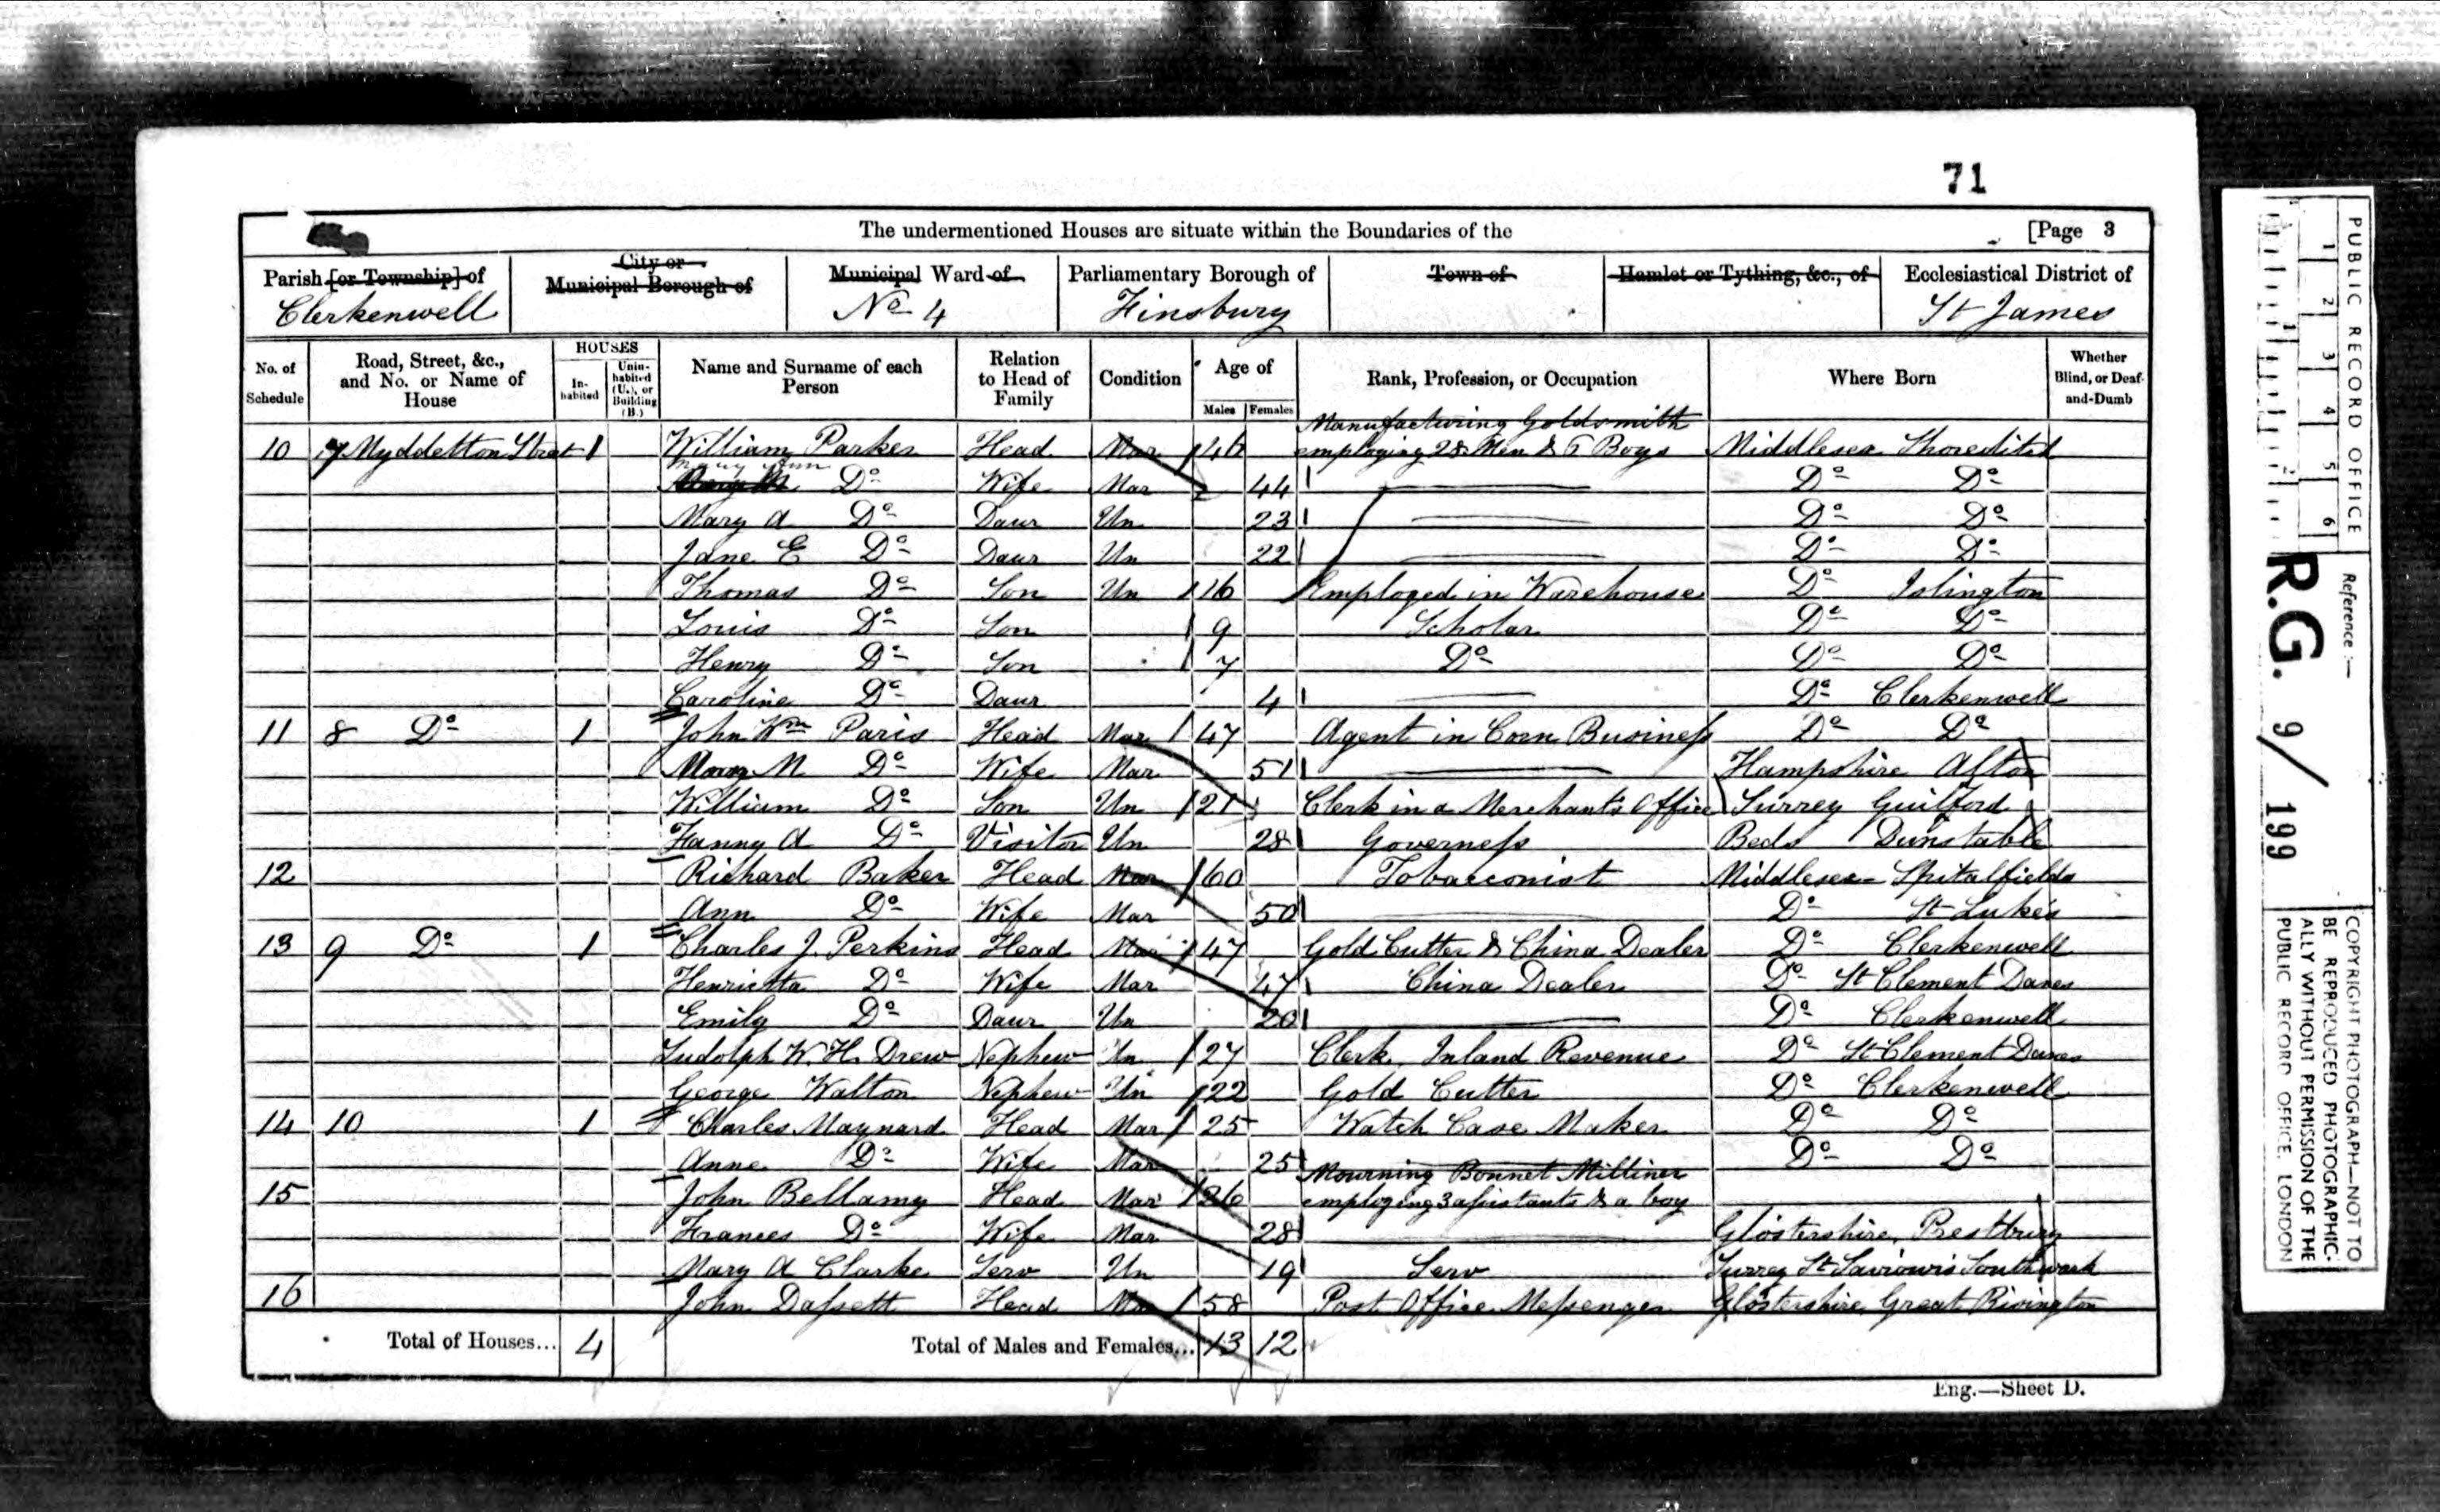 71
The undermentioned Houses are situate within the Boundaries of the [Page 3
Parish [or Township] of Clerkenwell
City or Municipal Borough of
Municipal Ward of No 4
Parliamentary Borough of Finsbury
Town of
Hamlet or Tything, &c., of
Ecclesiastical District of St James
No. of Schedule
Road, Street, &c., and No. or Name of House
HOUSES
In-habited
Unin-habited (U.), or Building (B.)
Name and Surname of each Person
Relation to Head of Family
Condition
Age of
Males Females
Rank, Profession, or Occupation
Where Born
Whether Blind, or Deaf-and-Dumb
10 7 Myddelton Street 1 William Parker Head Mar 46 Manufacturing Goldsmith employing 28 Men & 6 Boys Middlesex Shoreditch
Mary Ann Do Wife Mar 44 Do Do
Mary A Do Daur Un 23 Do Do
Jane E Do Daur Un 22 Do Do
Thomas Do Son Un 16 Employed in Warehouse Do Islington
Louis Do Son 9 Scholar Do Do
Henry Do Son 7 Do Do Do
Caroline Do Daur 4 Do Clerkenwell
11 8 Do 1 John Wm Paris Head Mar 47 Agent in Corn Business Do Do
Mary M Do Wife Mar 51 Hampshire Alton
William Do Son Un 21 Clerk in a Merchant's Office Surrey Guilford
Fanny A Do Visitor Un 28 Governess Beds Dunstable
12 Richard Baker Head Mar 60 Tobacconist Middlesex Spitalfields
Ann Do Wife Mar 50 Do St Luke's
13 9 Do 1 Charles J. Perkins Head Mar 47 Gold Cutter & China Dealer Do Clerkenwell
Henrietta Do Wife Mar 47 China Dealer Do St Clement Danes
Emily Do Daur Un 20 Do Clerkenwell
Ludolph W. H. Drew Nephew Un 27 Clerk, Inland Revenue Do St Clement Danes
George Walton Nephew Un 22 Gold Cutter Do Clerkenwell
14 10 1 Charles Maynard Head Mar 25 Watch Case Maker Do Do
Anne Do Wife Mar 25 Do Do
15 John Bellamy Head Mar 26 Mourning Bonnet Milliner employing 3 assistants & a boy
Frances Do Wife Mar 28 Glostershire, Prestbury
Mary A Clarke Serv Un 19 Serv Surrey St Saviour's Southwark
16 John Dassett Head Mar 58 Post Office Messenger Glostershire Great Rivington
Total of Houses... 4 Total of Males and Females... 13 12
Eng.—Sheet D.
PUBLIC RECORD OFFICE
1 2 3 4 5 6
Reference :—
R.G. 9/199
COPYRIGHT PHOTOGRAPH—NOT TO BE REPRODUCED PHOTOGRAPHIC-ALLY WITHOUT PERMISSION OF THE PUBLIC RECORD OFFICE, LONDON